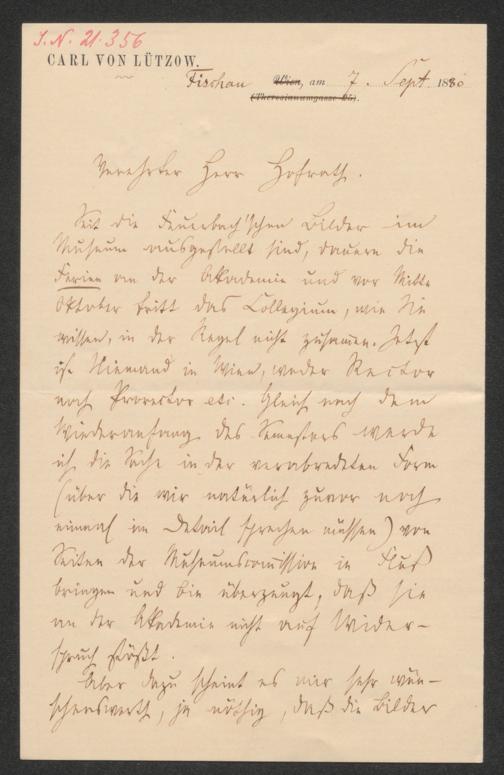 I.N. 21.356
CARL VON LÜTZOW.
Fischau Wien, am 7. Sept. 1880
(Theresianumgasse 25).
Verehrter Herr Hofrath.
Seit die Feuerbach'schen Bilder im
Museum ausgestellt sind, dauern die
Ferien an der Akademie und vor Mitte
Oktober tritt das Collegium, wie Sie
wissen, in der Regel nicht zusammen. Jetzt
ist Niemand in Wien, weder Rector
noch Prorector etc. Gleich nach dem
Wiederanfang des Semesters werde
ich die Sache in der verabredeten Form
(über die wir natürlich zuvor noch
einmal im Detail sprechen müssen) von
Seiten der Museumscomission in Fluß
bringen und bin überzeugt, daß sie
an der Akademie nicht auf Wider-
spruch stößt.
Aber dazu scheint es mir sehr wün-
schenswerth, ja nöthig, daß die Bilder